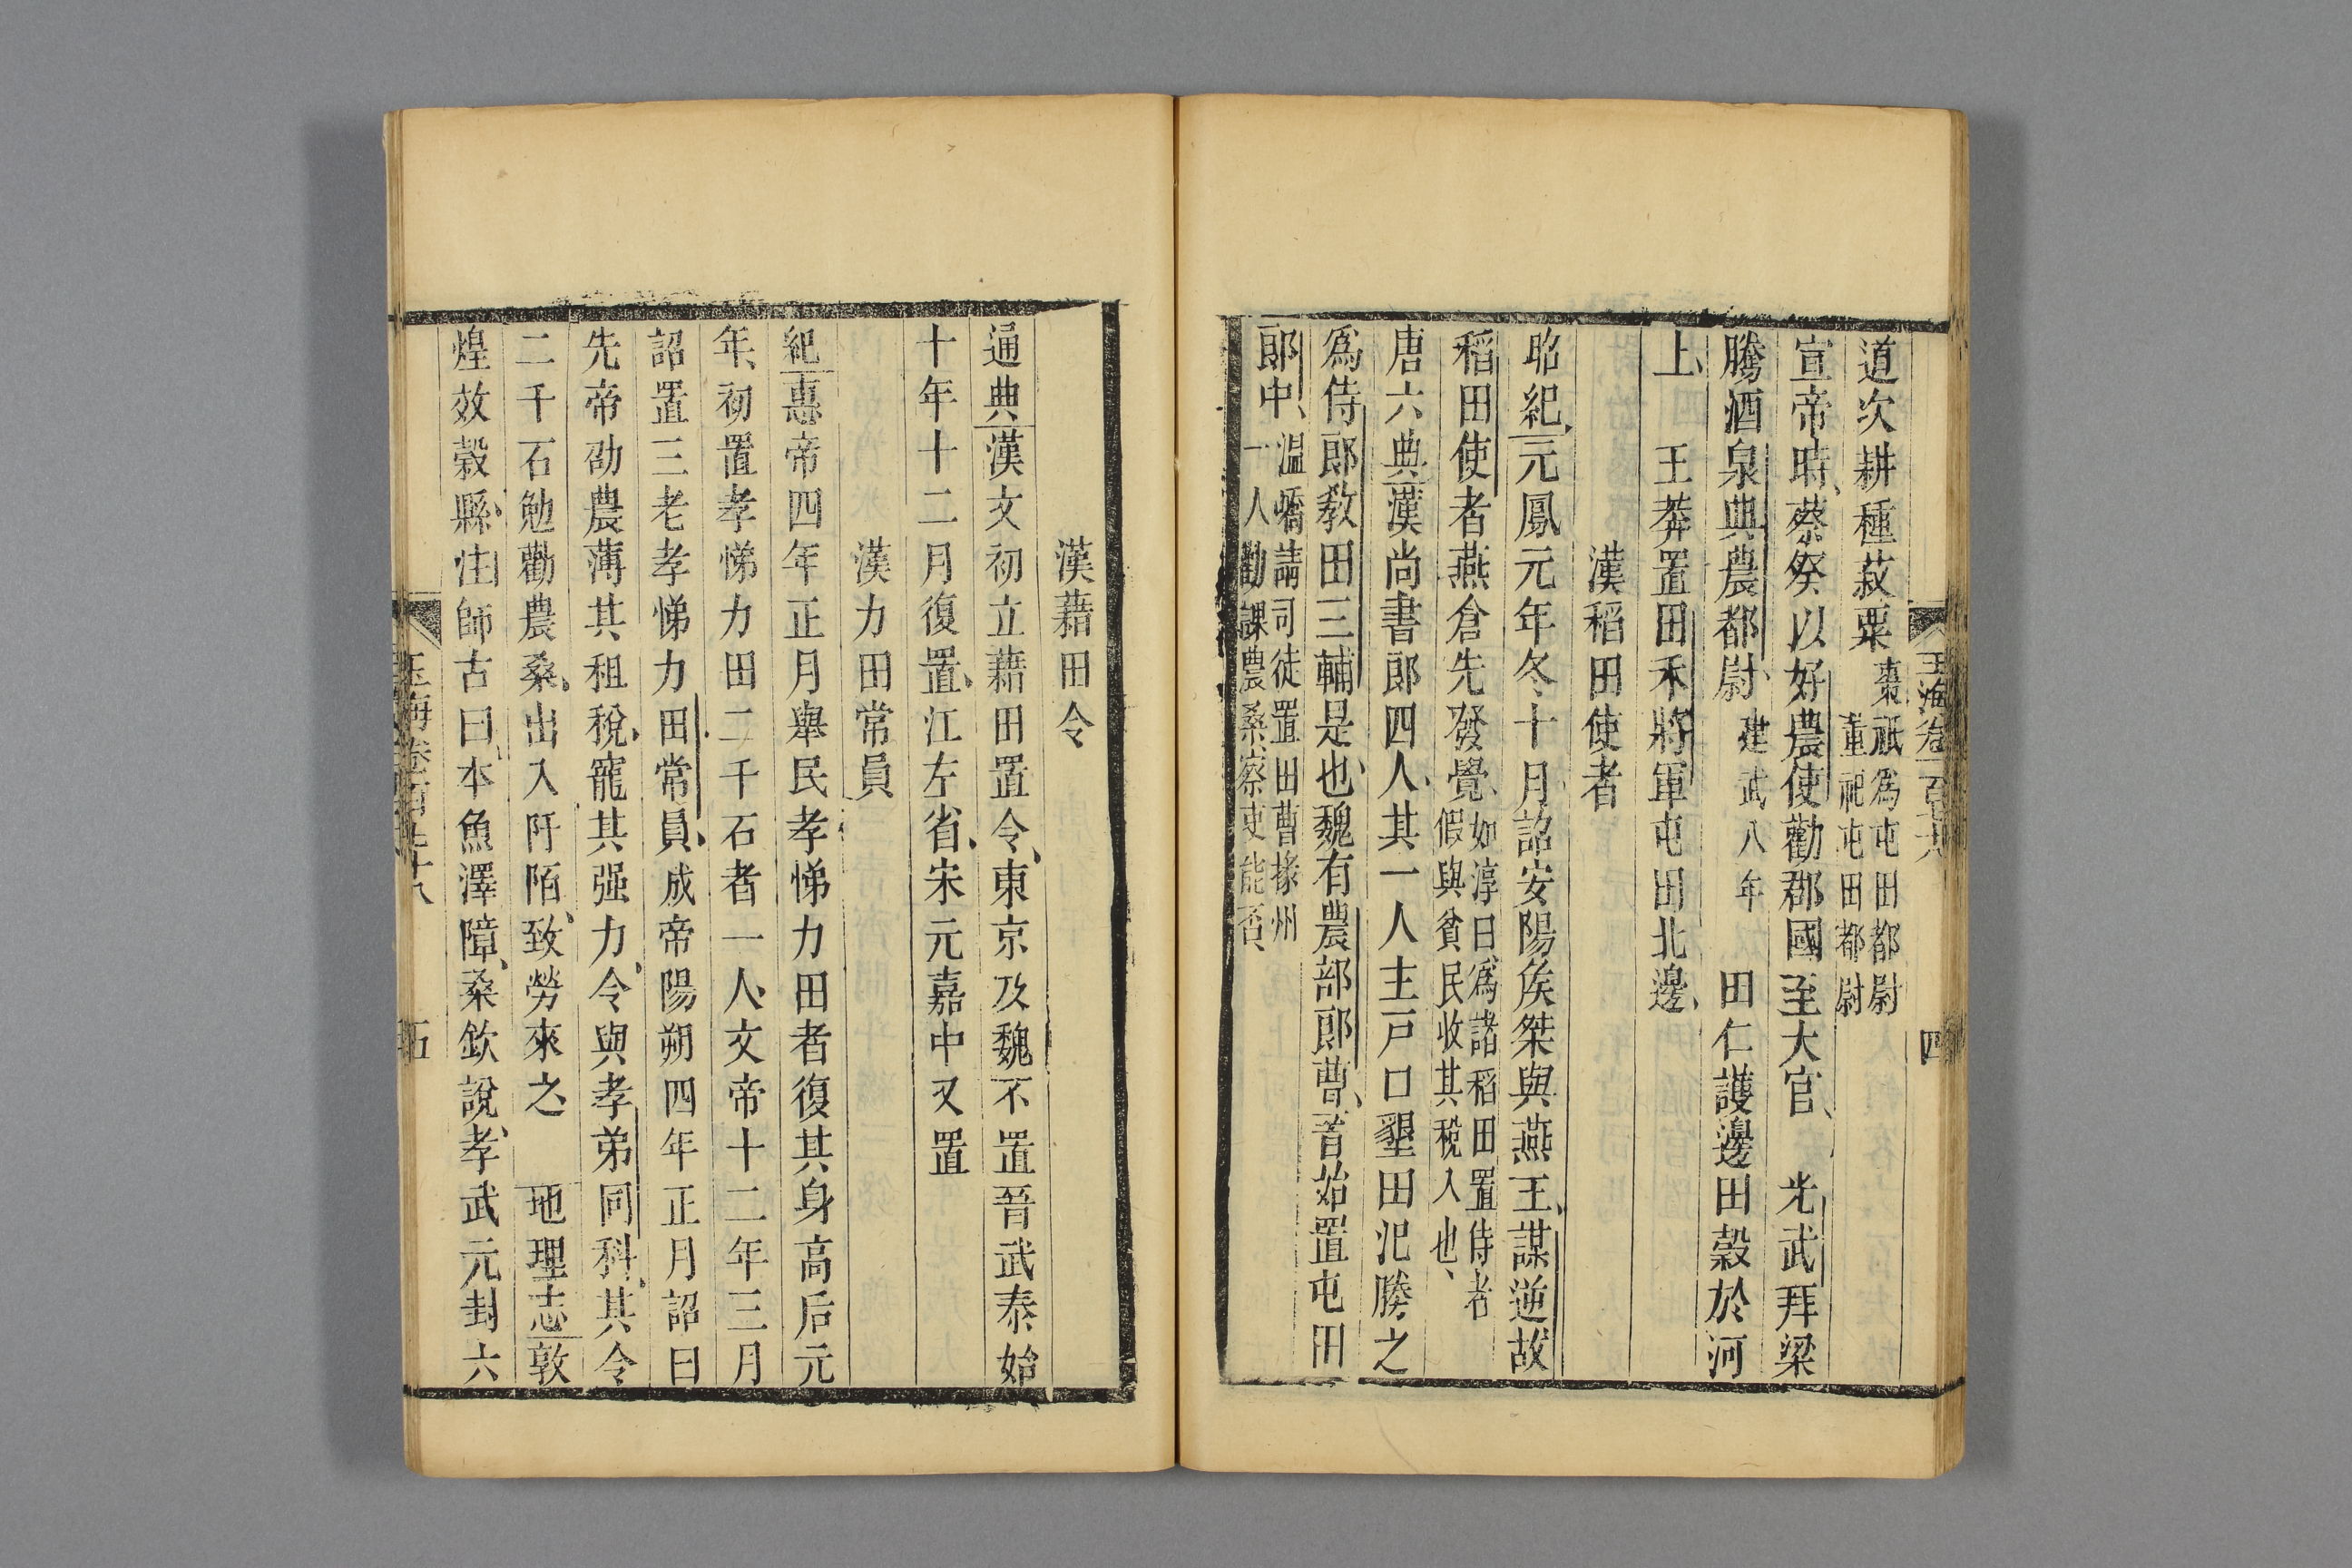 道次耕種菽粟棗祗爲屯田都尉董祀屯田都尉
宣帝時蔡癸以好農使勸郡國至大官　光武拜梁
騰酒泉典農都尉建武八年　田仁護邊田穀於河
上　王莽置田禾將軍屯田北邊
漢稻田使者
昭紀元鳳元年冬十月詔安陽侯桀與燕王謀逆故
稻田使者燕倉先發覺如淳曰爲諸稻田置侍者假與貧民收其稅入也
唐六典漢尚書郎四人其一人主戸口墾田汜勝之
爲侍郎敎田三輔是也魏有農部郎曹晉始置屯田
郎中溫嶠請司徒置田曹掾州一人勸課農桑察吏能否
玉海卷一百 四
漢藉田令
通典漢文初立藉田置令東京及魏不置晉武泰始
十年十二月復置江左省宋元嘉中又置
漢力田常員
紀惠帝四年正月舉民孝悌力田者復其身高后元
年初置孝悌力田二千石者一人文帝十二年三月
詔置三老孝悌力田常員成帝陽朔四年正月詔曰
先帝劭農薄其租稅寵其强力令與孝弟同科其令
二千石勉勸農桑出入阡陌致勞來之　地理志敦
煌效穀縣注師古曰本魚澤障桑欽說孝武元封六
玉海卷 五